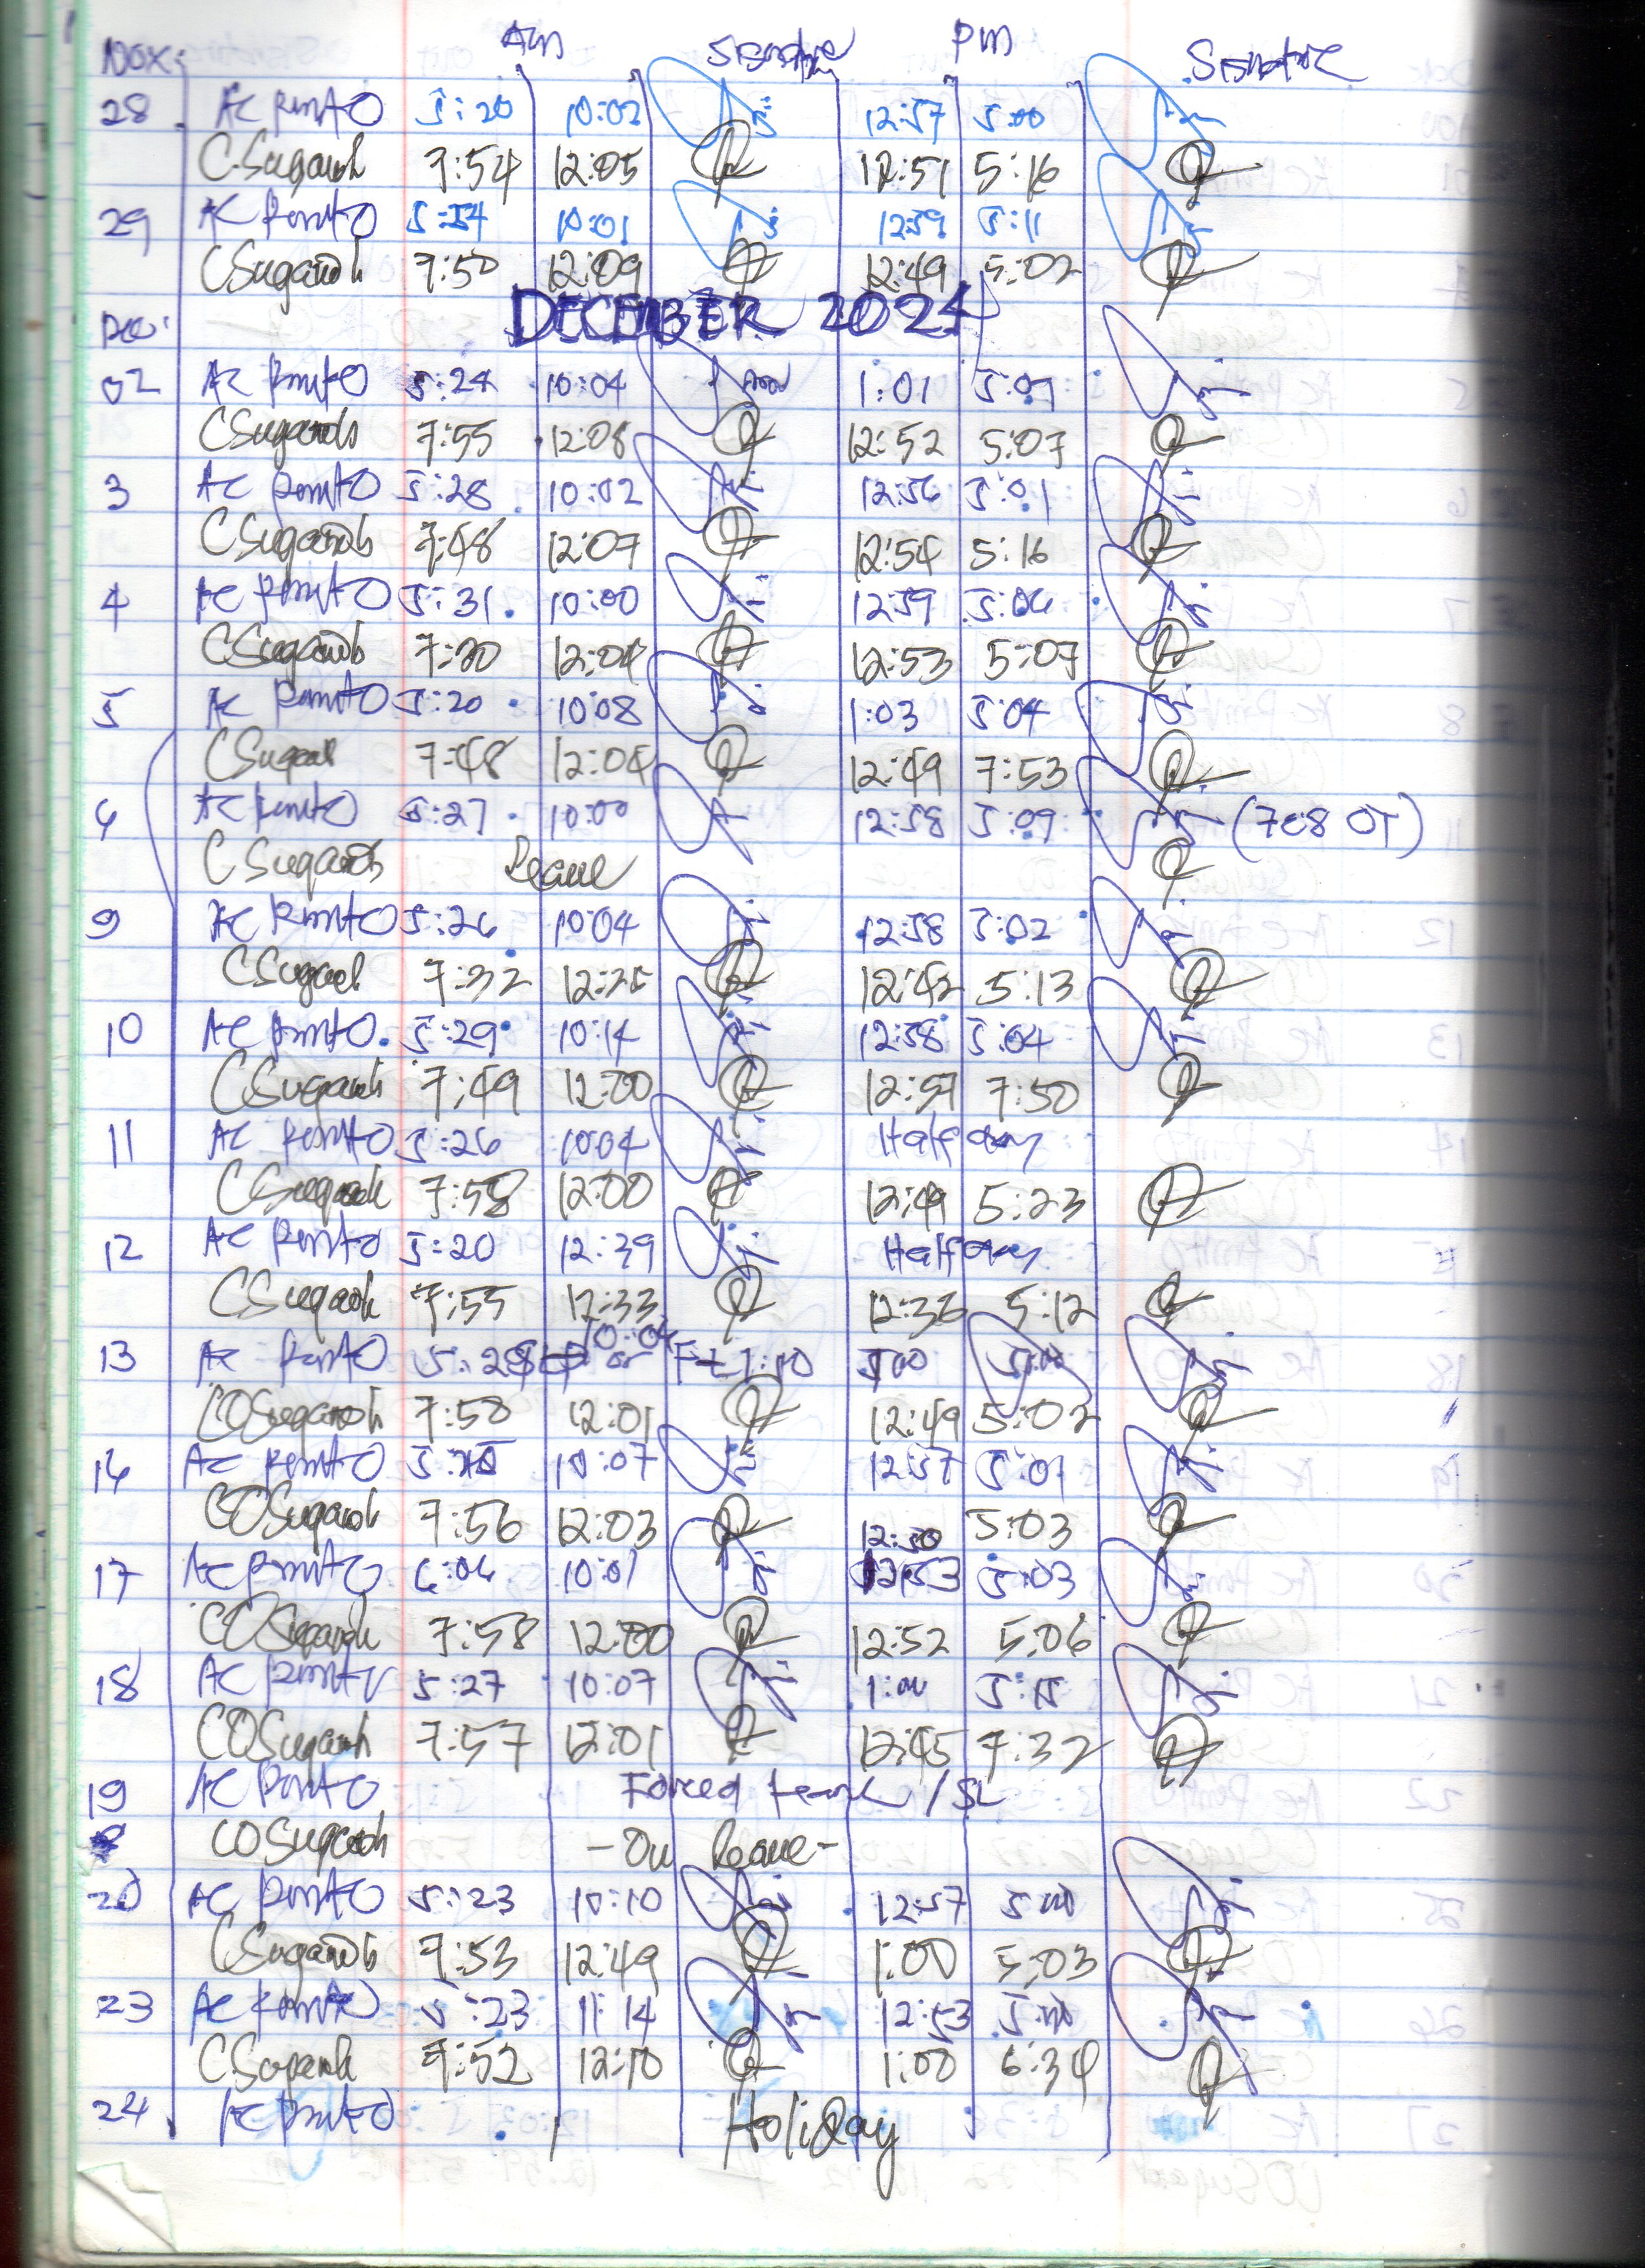 Nov: Am Signature Pm Signature
28 AC Pinto 5:20 10:02 12:57 5:00
C.Suganob 7:54 12:05 12:51 5:16
29 AC Pinto 5:34 10:01 12:59 5:11
CSuganob 7:50 12:09 12:49 5:02
Dec: DECEMBER 2024
02 AC Pinto 5:24 10:04 1:01 5:07
CSuganob 7:55 12:08 12:52 5:07
3 AC Pinto 5:28 10:02 12:56 5:01
CSuganob 7:48 12:07 12:54 5:16
4 AC Pinto 5:31 10:00 12:59 5:06
CSuganob 7:30 12:04 12:53 5:07
5 AC Pinto 5:20 10:08 1:03 5:04
CSuganob 7:48 12:04 12:49 7:53
6 AC Pinto 5:27 10:00 12:58 5:09 (7&8 OT)
CSuganob Leave
9 AC Pinto 5:26 10:04 12:58 5:02
CSuganob 7:32 12:42 5:13
10 AC Pinto 5:29 10:14 12:58 5:04
CSuganob 7:49 12:00 12:57 7:50
11 AC Pinto 5:26 10:04 Halfday
CSuganob 7:58 12:00 12:49 5:23
12 AC Pinto 5:20 12:39 Halfday
CSuganob 7:55 12:33 12:36 5:12
13 AC Pinto 5:28 10:04 5:00 5:00
COSuganob 7:58 12:01 12:49 5:02
16 AC Pinto 10:07 12:57 5:01
COSuganob 7:56 12:03 12:50 5:03
17 AC Pinto 6:06 10:01 12:53 5:03
COSuganob 7:58 12:00 12:52 5:06
18 AC Pinto 5:27 10:07 1:00 5:15
COSuganob 7:57 12:01 12:45 7:32
19 AC Pinto Forced Leave /SL
COSuganob -On leave-
20 AC Pinto 5:23 10:10 12:57 5:00
CSuganob 7:53 12:49 1:00 5:03
23 AC Pinto 5:23 11:14 12:53 5:00
CSuganob 7:52 12:10 1:00 6:34
24 AC Pinto Holiday